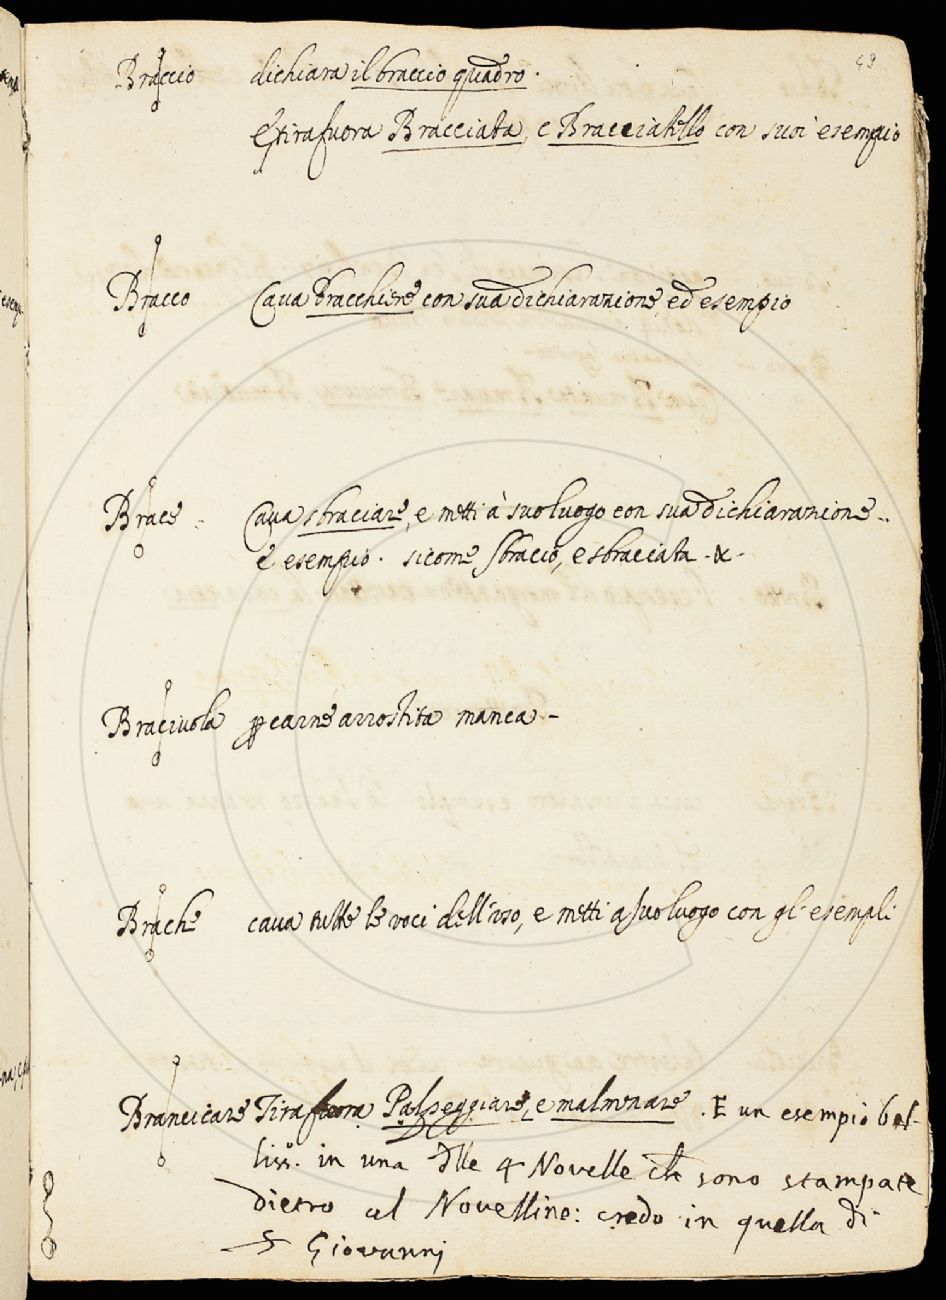 49
Braccio dichiara il braccio quadro.
E tira fuora Bracciata, e Bracciatello con suoi esempio
Bracco Caua bracchiere con sua dichiarazione ed esempio
Brace Caua sbraciare, e metti à suo luogo con sua dichiarazione..
e esempio. sicome sbracio, e sbraciata. &.
Braciuola per carne arrostita manca -
Brache caua tutte le voci dell'uso, e metti a suo luogo con gl'esempli
Brancicare Tira fuora Palpeggiare, e malmenare. E un esempio bel-
liss.o in una delle 4 Novelle che sono stampate
dietro al Novellino: credo in quella di
S Giovanni